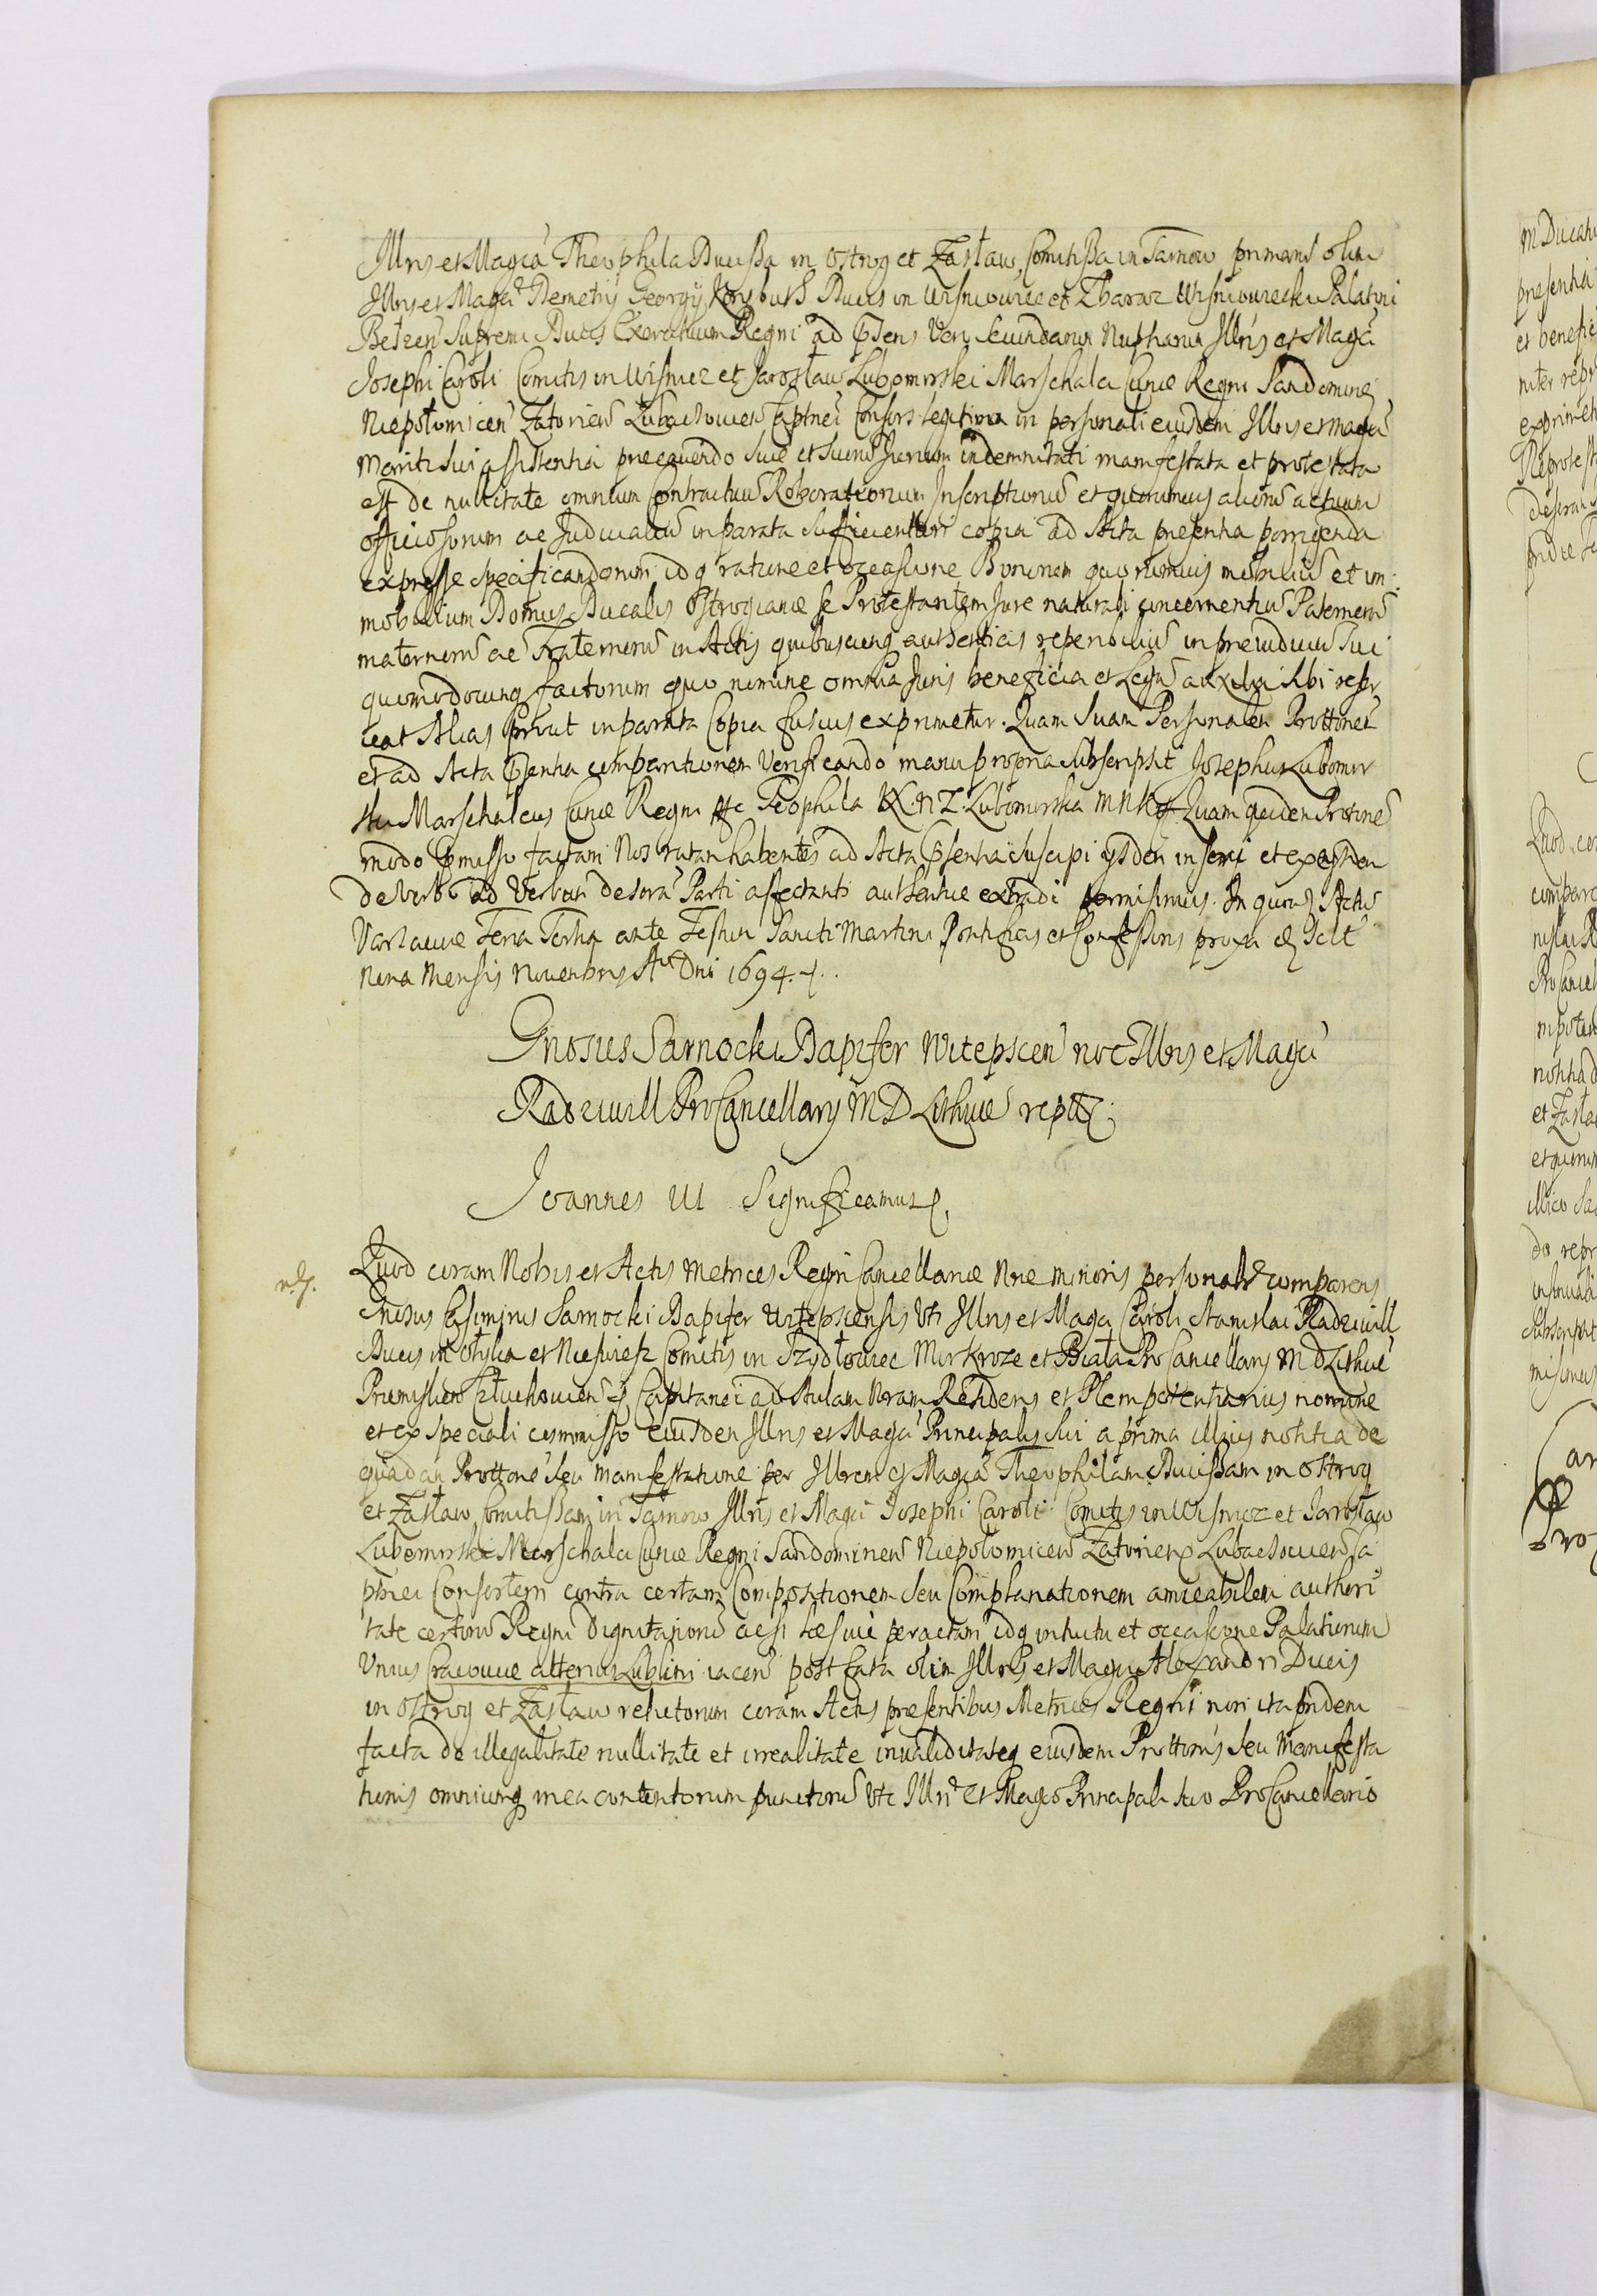 Illris et Magca Theophila Ducissa in Ostrog et Zasław, Comitissa in Tarnow primariũ olim
Illris et Magci Demetrij Georgij Korybuth Ducis in Wisniowiec et Zbaraz Wisniowiecki Palatini
Bełzeñ Supremi Ducis Exercituum Regni ad pñsens vero secundarum Nuptiarum Illris et Magci
Josephi Caroli Comitis in Wisnicz et Jarosław Lubomirski Marschalci Curiæ Regni Sandomireñ
Niepołomiceñ Zatorieñ Lubaczovieñ Captnei Consors legitima in personali eiusdem Illris et Magci
Mariti sui assistentia præcavendo suæ et suorũ Jurium indemnitati manifestata et protestata
est de nullitate omnium Contractuũ Roborationum Inscriptionũ et quorumvis aliorũ actuum
officiosorum ac Judicialiũ in parata sufficientiori copia ad Acta præsentia porrigenda
expresse specificandorum idq ratione et occasione Bonorum quorumvis mobiliũ et im:
mobilium Domus Ducalis Ostrogianæ se Protestantem Jure naturali concernentiũ Paternorũ
maternorũ ac Fraternorũ in Actis quibuscunq authenticis reperibiliũ in præiudiciũ sui
quomodocunq factorum quo nomine omnia Juris beneficia et Legũ auxilia sibi reser
veat Alias prout in parata Copia fusius exprimetur. Quam suam Personalem Prottonem
et ad Acta pñsentia comparitionem verificando manu propria subscripsit Josephus Lubomir
ski Marschalcus Curiæ Regni Teophila X. N Z. Lubomirska M N K Quam quidem Prottonẽ
modo pmisso factam Nos ratam habentes ad Acta pñsentia suscipi ysdem inseri et ex ysdem
de verbo ad Verbum desoraf Parti affectanti authentice extradi permisimus. In quorũ Actũ
Varsaviæ Feria Tertia ante Festum Sancti Martini Pontificis et Confessoris proxa
nona Mensis Novembris Ao Dni 1694.
Gnosus Sarnocki Dapifer Witepsceñ noe Illris et Magci
Radziwill ProCancellarij M D Lithuæ
Joannes III Significamus
Quod coram Nobis et Actis Metrices Regni Cancellariæ Nræ minoris personalr comparens
Gnosus Casimirus Sarnocki Dapifer Witepscensis Uti Illris et Magci Caroli Stanislai Radziwill
Ducis in Ołyka et Nieswiesz Comitis in Szydłowiec Mir Kroze et Biała ProCancellarij M D Lithuæ
Præmyslieñ Człuchovieñ Capitanei ad Aulam Nram Residens et Plenipotentiarius nomine
et ex speciali commisso eiusdem Illris et Magci Principalis sui a prima illius notitia de
quadam Prottonẽ seu manifestatione per Illrem et Magcã Theophilam Ducissam in Ostrog
et Zasław Comitissam in Tarnow Illris et Magci Josephi Caroli Comitis in Wisnicz et Jarosław
Lubomirski Marschalci Curiæ Regni Sandomireñ Niepołomiceñ Zatorieñ Lubaczovieñ Ca
ptnei Consortem contra certam Compositionem seu Complanationem amicabilem authori
tate certorũ Regni Dignitariorũ acsi læsive peractam idq intuitu et occasione Palatiorum
Unius Cracoviæ alterius Lublini iaceñ post fata olim Illris et Magci Alexandri Ducis
in Ostrog et Zasław relictorum coram Actis præsentibus Metrices Regni non ita pridem
facta de illegalitate nullitate et irrealitate invaliditateq eiusdem Prottonis seu Manifesta
tionis omniumq in ea contentorum punctorũ Uti Illri et Magco Principali suo ProCancellario